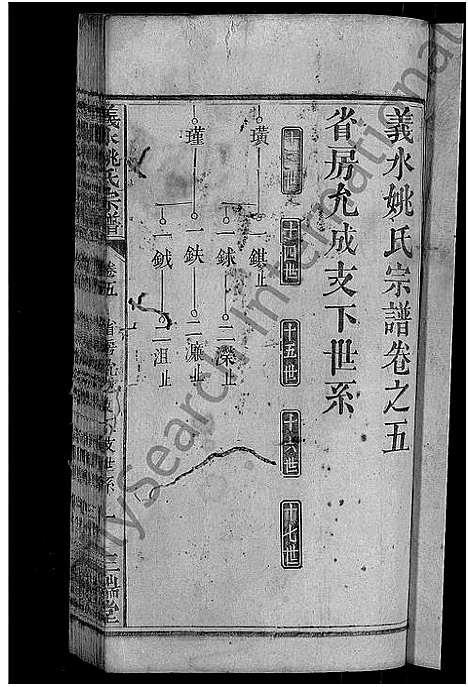 義水姚氏宗譜卷之五
省房允成支下世系
十三世 十四世 十五世 十六世 十七世
璜 一鉷止
一銶 二濼止
瑾 一鈇 二濂止
一鉞 二沮止
義水姚氏宗譜 卷五 省房允成下支世系 一 三瑞堂
MySearch International